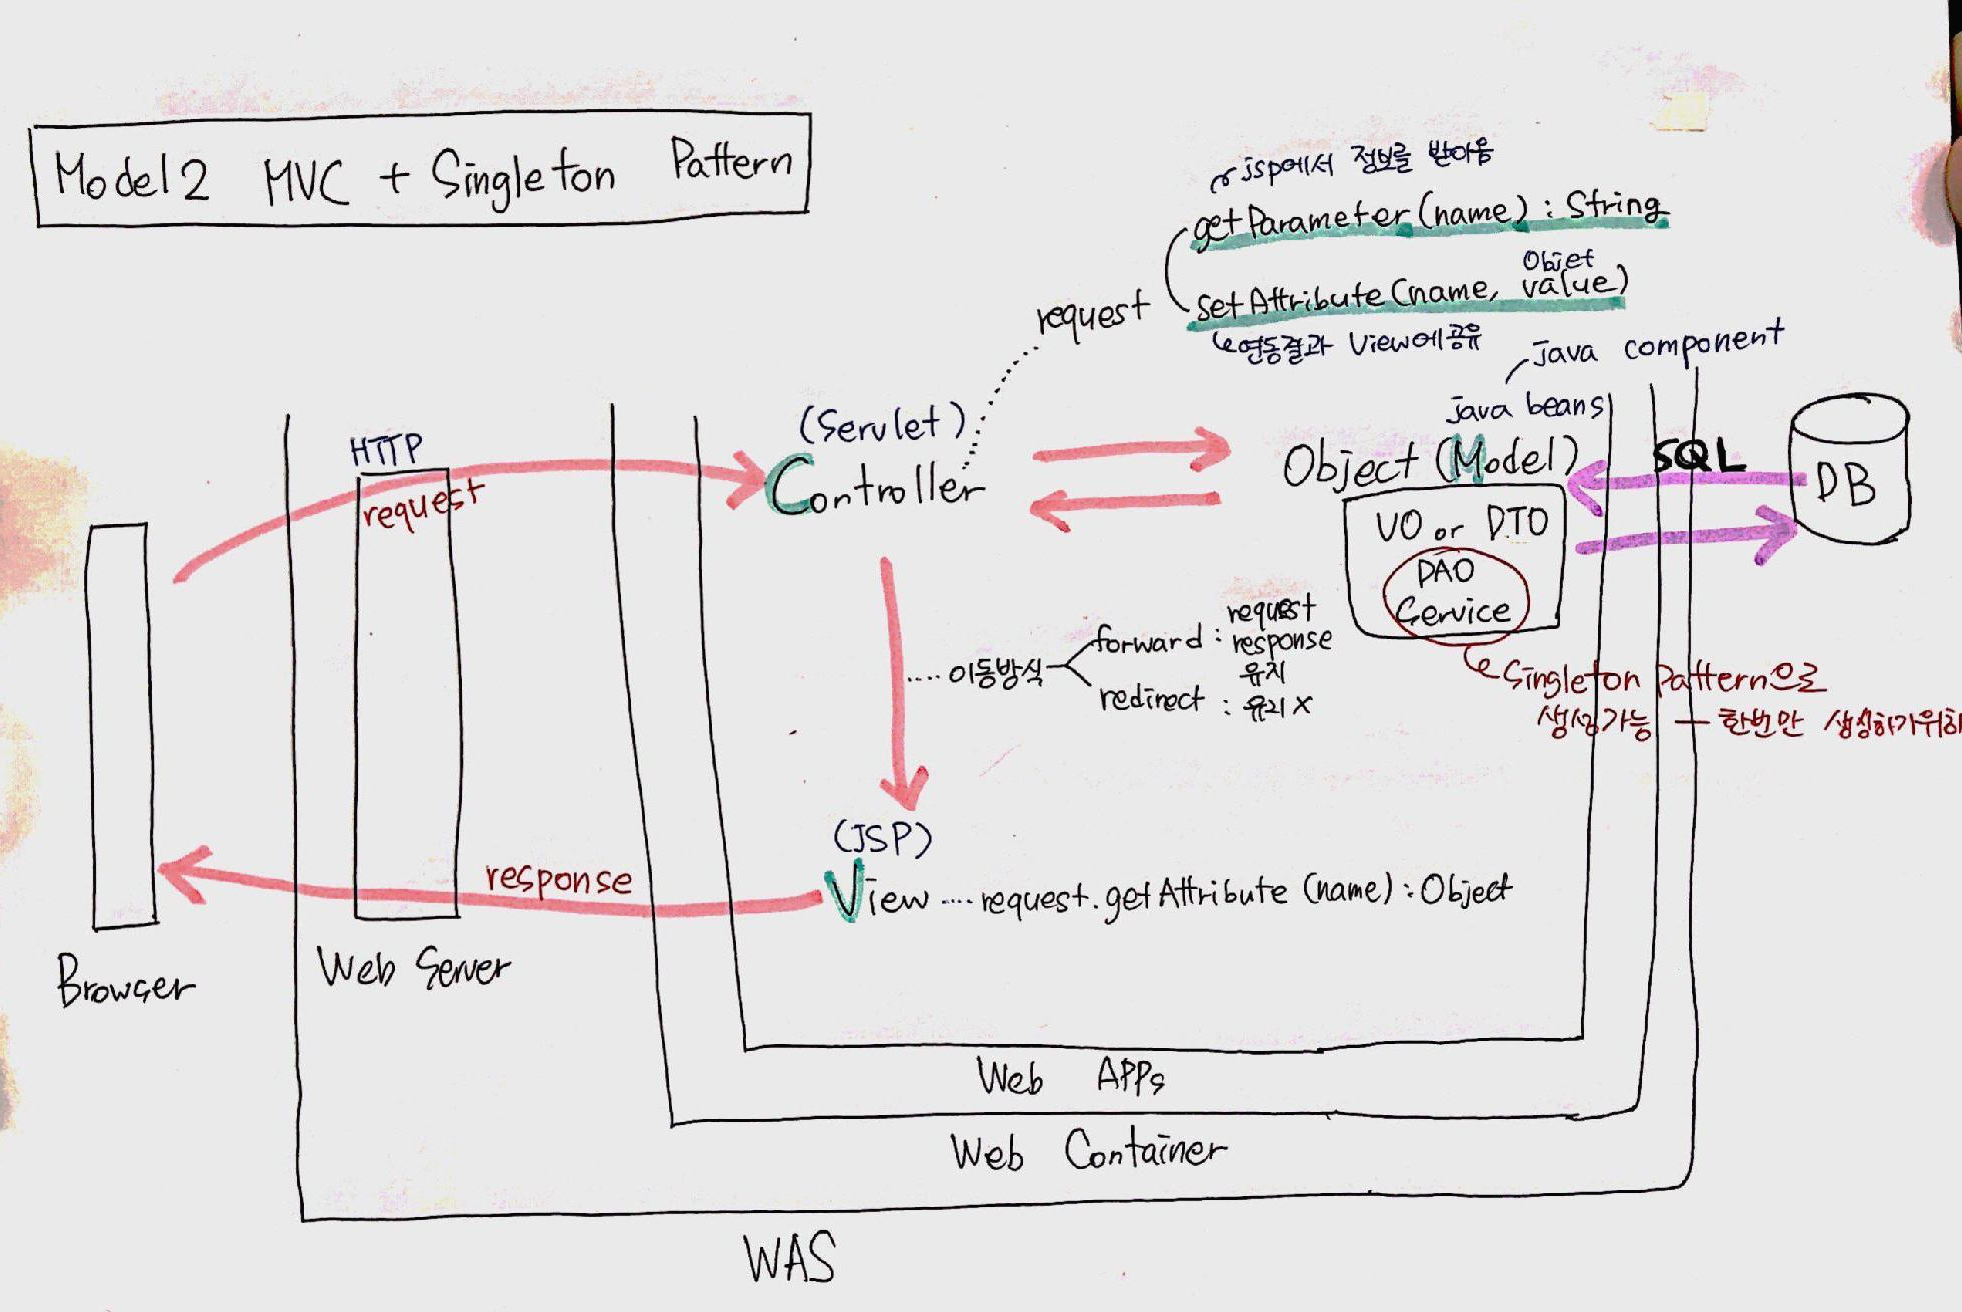 Model2 MVC + Singleton Pattern
jsp에서 정보를 받아옴
getParameter(name) : String
Objet
setAttribute(name, value)
request
연동결과 View에공유
java component
java beans
(Servlet)
Controller
Object (Model)
SQL
DB
HTTP
request
VO or DTO
DAO
Service
request
forward : response
유지
.... 이동방식
redirect : 유지 X
Singleton Pattern으로
생성가능 — 한번만 생성하기위해
(JSP)
View .... request.getAttribute (name) : Object
response
Web Server
Browser
Web APPs
Web Container
WAS